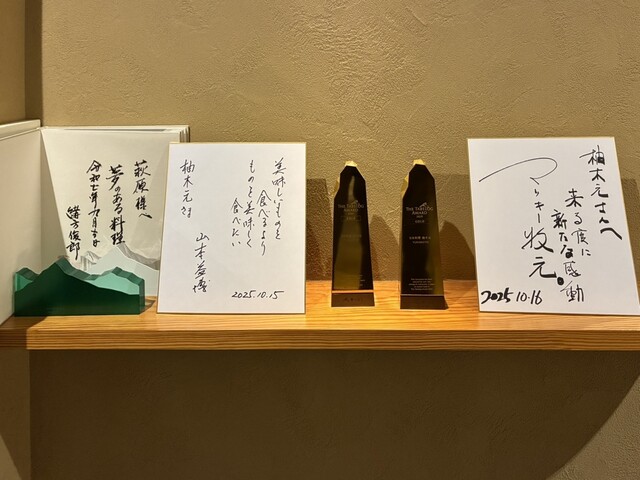 萩原様へ
夢のある料理
緒方俊郎
美味しいものを
食べるより
ものを美味しく
食べたい
柚木元さま
山本益博
2025.10.15
THE TABELOG
AWARD
THE TABELOG
AWARD
柚木元さんへ
来る度に
新たな感動
マッキー牧元。
2025 10.16